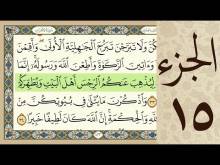 كُنَّ وَلَا تَبَرَّجْنَ تَبَرُّجَ ٱلْجَٰهِلِيَّةِ ٱلْأُولَىٰ وَأَقِمْنَ
وَءَاتِينَ ٱلزَّكَوٰةَ وَأَطِعْنَ ٱللَّهَ وَرَسُولَهُۥٓ إِنَّمَا
لِيُذْهِبَ عَنكُمُ ٱلرِّجْسَ أَهْلَ ٱلْبَيْتِ وَيُطَهِّرَكُمْ
وَٱذْكُرْنَ مَا يُتْلَىٰ فِى بُيُوتِكُنَّ مِنْ
وَٱلْحِكْمَةِ إِنَّ ٱللَّهَ كَانَ لَطِيفًا خَبِيرًا
الجزء
١٥